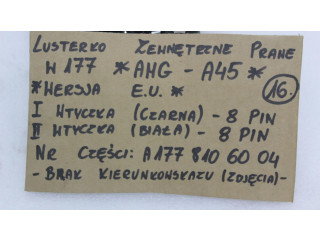 LUSTERKO ZEWNĘTRZNE PRAWE
W177 *AMG - A45*
*WERSJA E.U.* 16.
I WTYCZKA (CZARNA) - 8 PIN
II WTYCZKA (BIAŁA) - 8 PIN
NR CZĘŚCI: A 177 810 60 04
- BRAK KIERUNKOWSKAZU (ZDJĘCIA) -